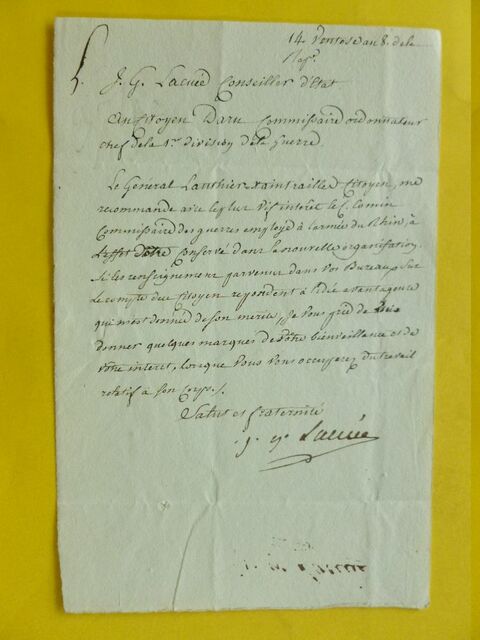 14 Ventose an 8. de la
Rep.
J. G. Lacuée Conseiller d'Etat
Au Citoyen Daru Commissaire ordonnateur
chef de la 1re division de la Guerre.
Le Général Lauthier Xaintrailles, Citoyen, me
recommande avec le plus vif intéret le C. Comin
Commissaire des guerres employé à l'armée du Rhin, à
l'effet d'être conservé dans la nouvelle organisation.
Si les renseignemens parvenus dans vos Bureaux sur
le compte du Citoyen repondent à l'idée avantageuse
qui m'est donnée de son mérite, je vous prie de lui
donner quelques marques de vôtre bienveillance et de
vôtre interet, lorsque vous vous occuperez du travail
relatif à son Corps.
Salut et fraternité
J. G. Lacuée